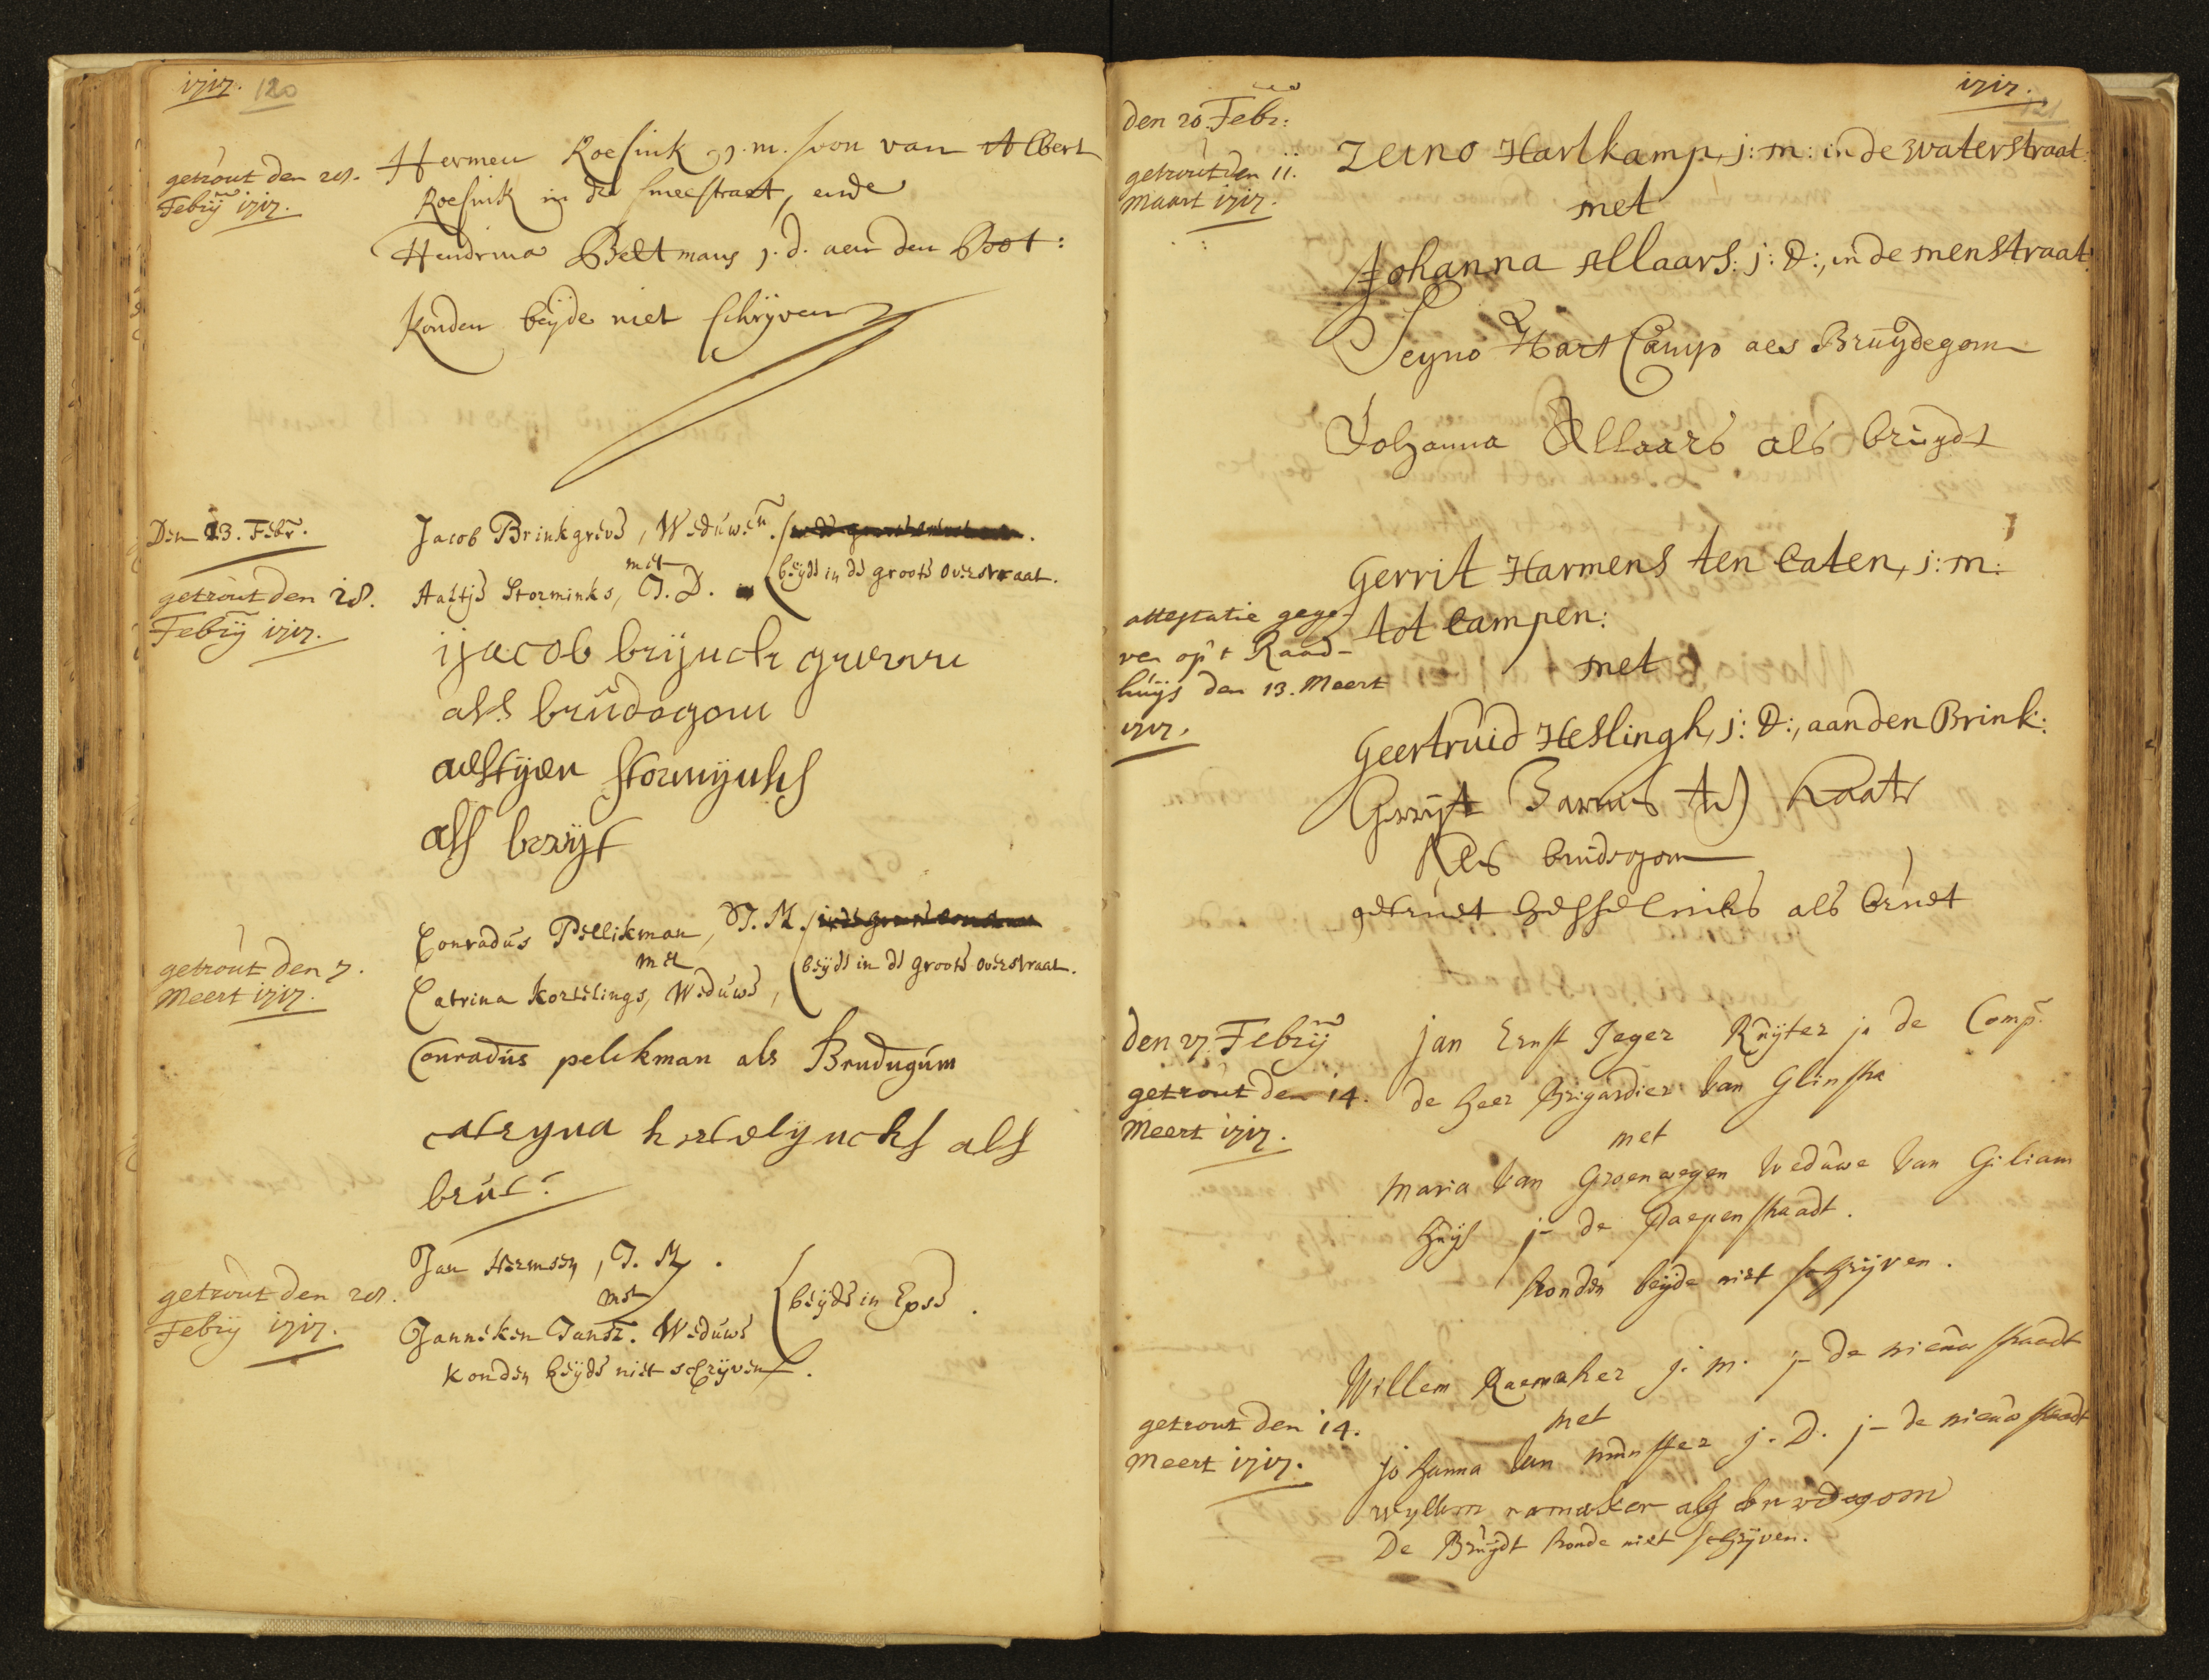 1717. 120
getrout den 28.
Febrij 1717.
Hermen Roesink j.m. soon van Albert
Roesink in de smeestraet, ende
Hendrina Beltmans j.d. aen den Poot:
Konden beijde niet schrijven
Den 13. Febr.
getrout den 28.
Febrij 1717.
Jacob Brinkgreve, Weduwen.
met
Aaltje Storminks, J.D.
beijde in de groote overstraat.
ijacob brijnck greeve
als brudegom
aeltyen stormijnks
als bruyt
getrout den 7.
Meert 1717.
Conradus Pellikman, J.M.
met
Catrina Kortelings, Weduwe,
beijde in de groote overstraat.
Conradus pelckman als Brudugum
catryna kortelijncks als
brut.
getrout den 28.
Febrij 1717.
Jan Hermsen, J.M.
met
Janneken Jansz. Weduwe
beijde in Epse.
konden beijde niet schrijven.
1717.
121
den 20. Febr:
getrout den 11.
Maart 1717.
Zeino Hartkamp, j:m: in de waterstraat:
met
Johanna Allaars: j:D:, in de menstraat:
Seyno Hart Camp aes Bruydegom
Johanna Allaars als bruydt
attestatie gege-
ven op't Raad-
huijs den 13. Meert
1717.
Gerrit Harmens ten Caten, j:m:
tot Campen:
met
Geertruid Heslingh, j:D:, aan den Brink:
Gerryt Harmes ten Kaate
Als brudegom
getruet hesselinks als bruet
den 27. Febrij
getrout den 14.
Meert 1717.
jan Ernst Jeger Ruijter in de Comp.
de heer Brigardier van Glinstra
met
Maria van Groenewegen weduwe van Giliam
Huijs in de Paepenstraadt.
konden beijde niet schrijven.
getrout den 14.
Meert 1717.
Willem Raemaker j.m. in de nieuw straadt
met
johanna van munster j.D. in de nieuw straadt
wyllem ramaker als bruedegom
De Bruijdt konde niet schrijven.